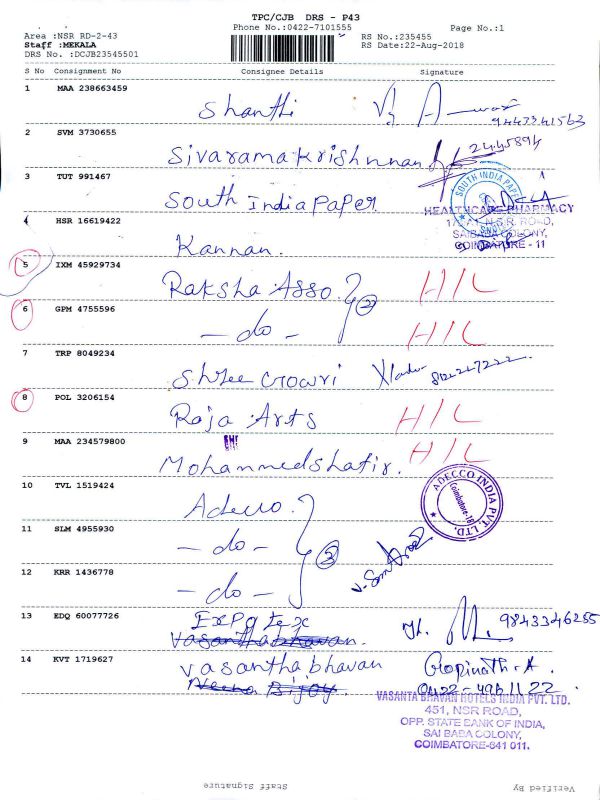 TPC/CJB DRS - P43
Phone No.:0422-7101555 Page No.:1
Area :NSR RD-2-43 RS No.:235455
Staff :MEKALA RS Date:22-Aug-2018
DRS No. :DCJB23545501
S No Consignment No Consignee Details Signature
1 MAA 238663459
Shanthi 9447341563
2 SVM 3730655
Sivarama Krishnnan 2445894
3 TUT 991467
South India Paper
SOUTH INDIA PAPER
HEALTHCARE PHARMACY
N.S.R. ROAD,
SAIBABA COLONY,
COIMBATORE - 11
4 HSR 16619422
Kannan.
5 IXM 45929734
Raksha Asso. 2 H/L
6 GPM 4755596
- do - H/L
7 TRP 8049234
Shree Gowri
8 POL 3206154
Raja Arts H/L
9 MAA 234579800
Mohammed shafir. H/L
10 TVL 1519424
ADECCO INDIA PVT. LTD.
Coimbatore-18
Adecco.
11 SLM 4955930
- do - 3
12 KRR 1436778
- do -
13 EDQ 60077726
Expo tex 9843346255
Vasantha bhavan.
14 KVT 1719627
Vasantha bhavan Gopinath. A.
0422-4961122
VASANTA BHAVAN HOTELS INDIA PVT. LTD.
451, NSR ROAD,
OPP. STATE BANK OF INDIA,
SAI BABA COLONY,
COIMBATORE-641 011.
Staff Signature Verified By